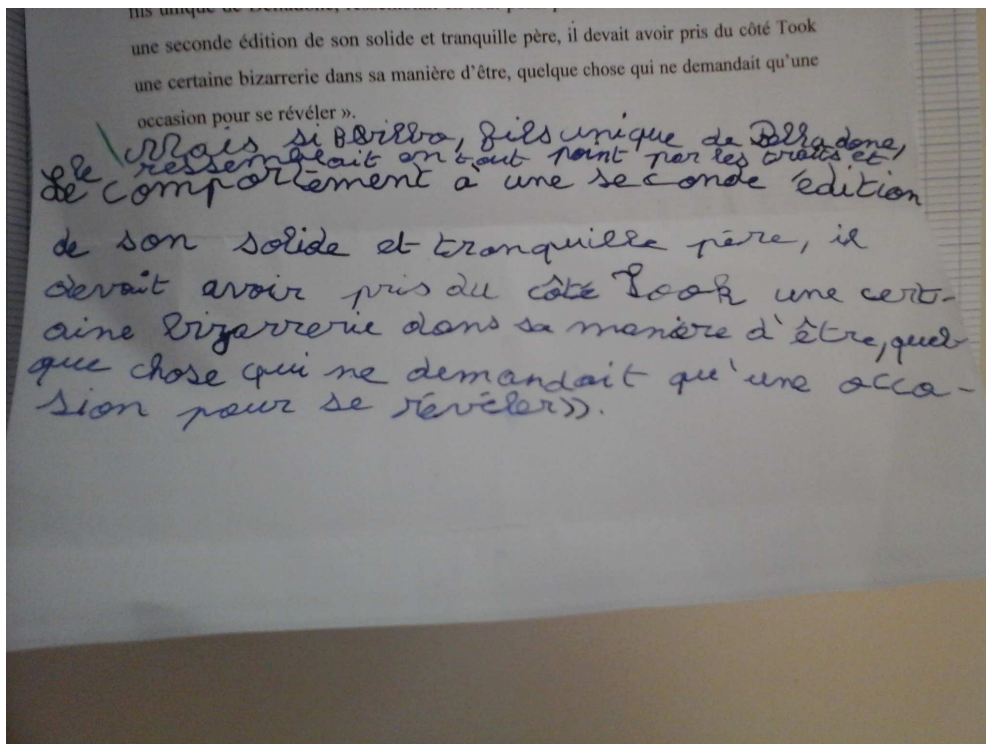 fils unique de
une seconde édition de son solide et tranquille père, il devait avoir pris du côté Took
une certaine bizarrerie dans sa manière d'être, quelque chose qui ne demandait qu'une
occasion pour se révéler ».
Mais si Bilbo, fils unique de Belladone,
ressemblait en tout point par les traits et
le comportement à une seconde édition
de son solide et tranquille père, il
devait avoir pris du côté Took une cert-
aine bizarrerie dans sa manière d'être, quel
que chose qui ne demandait qu'une occa-
sion pour se révéler».